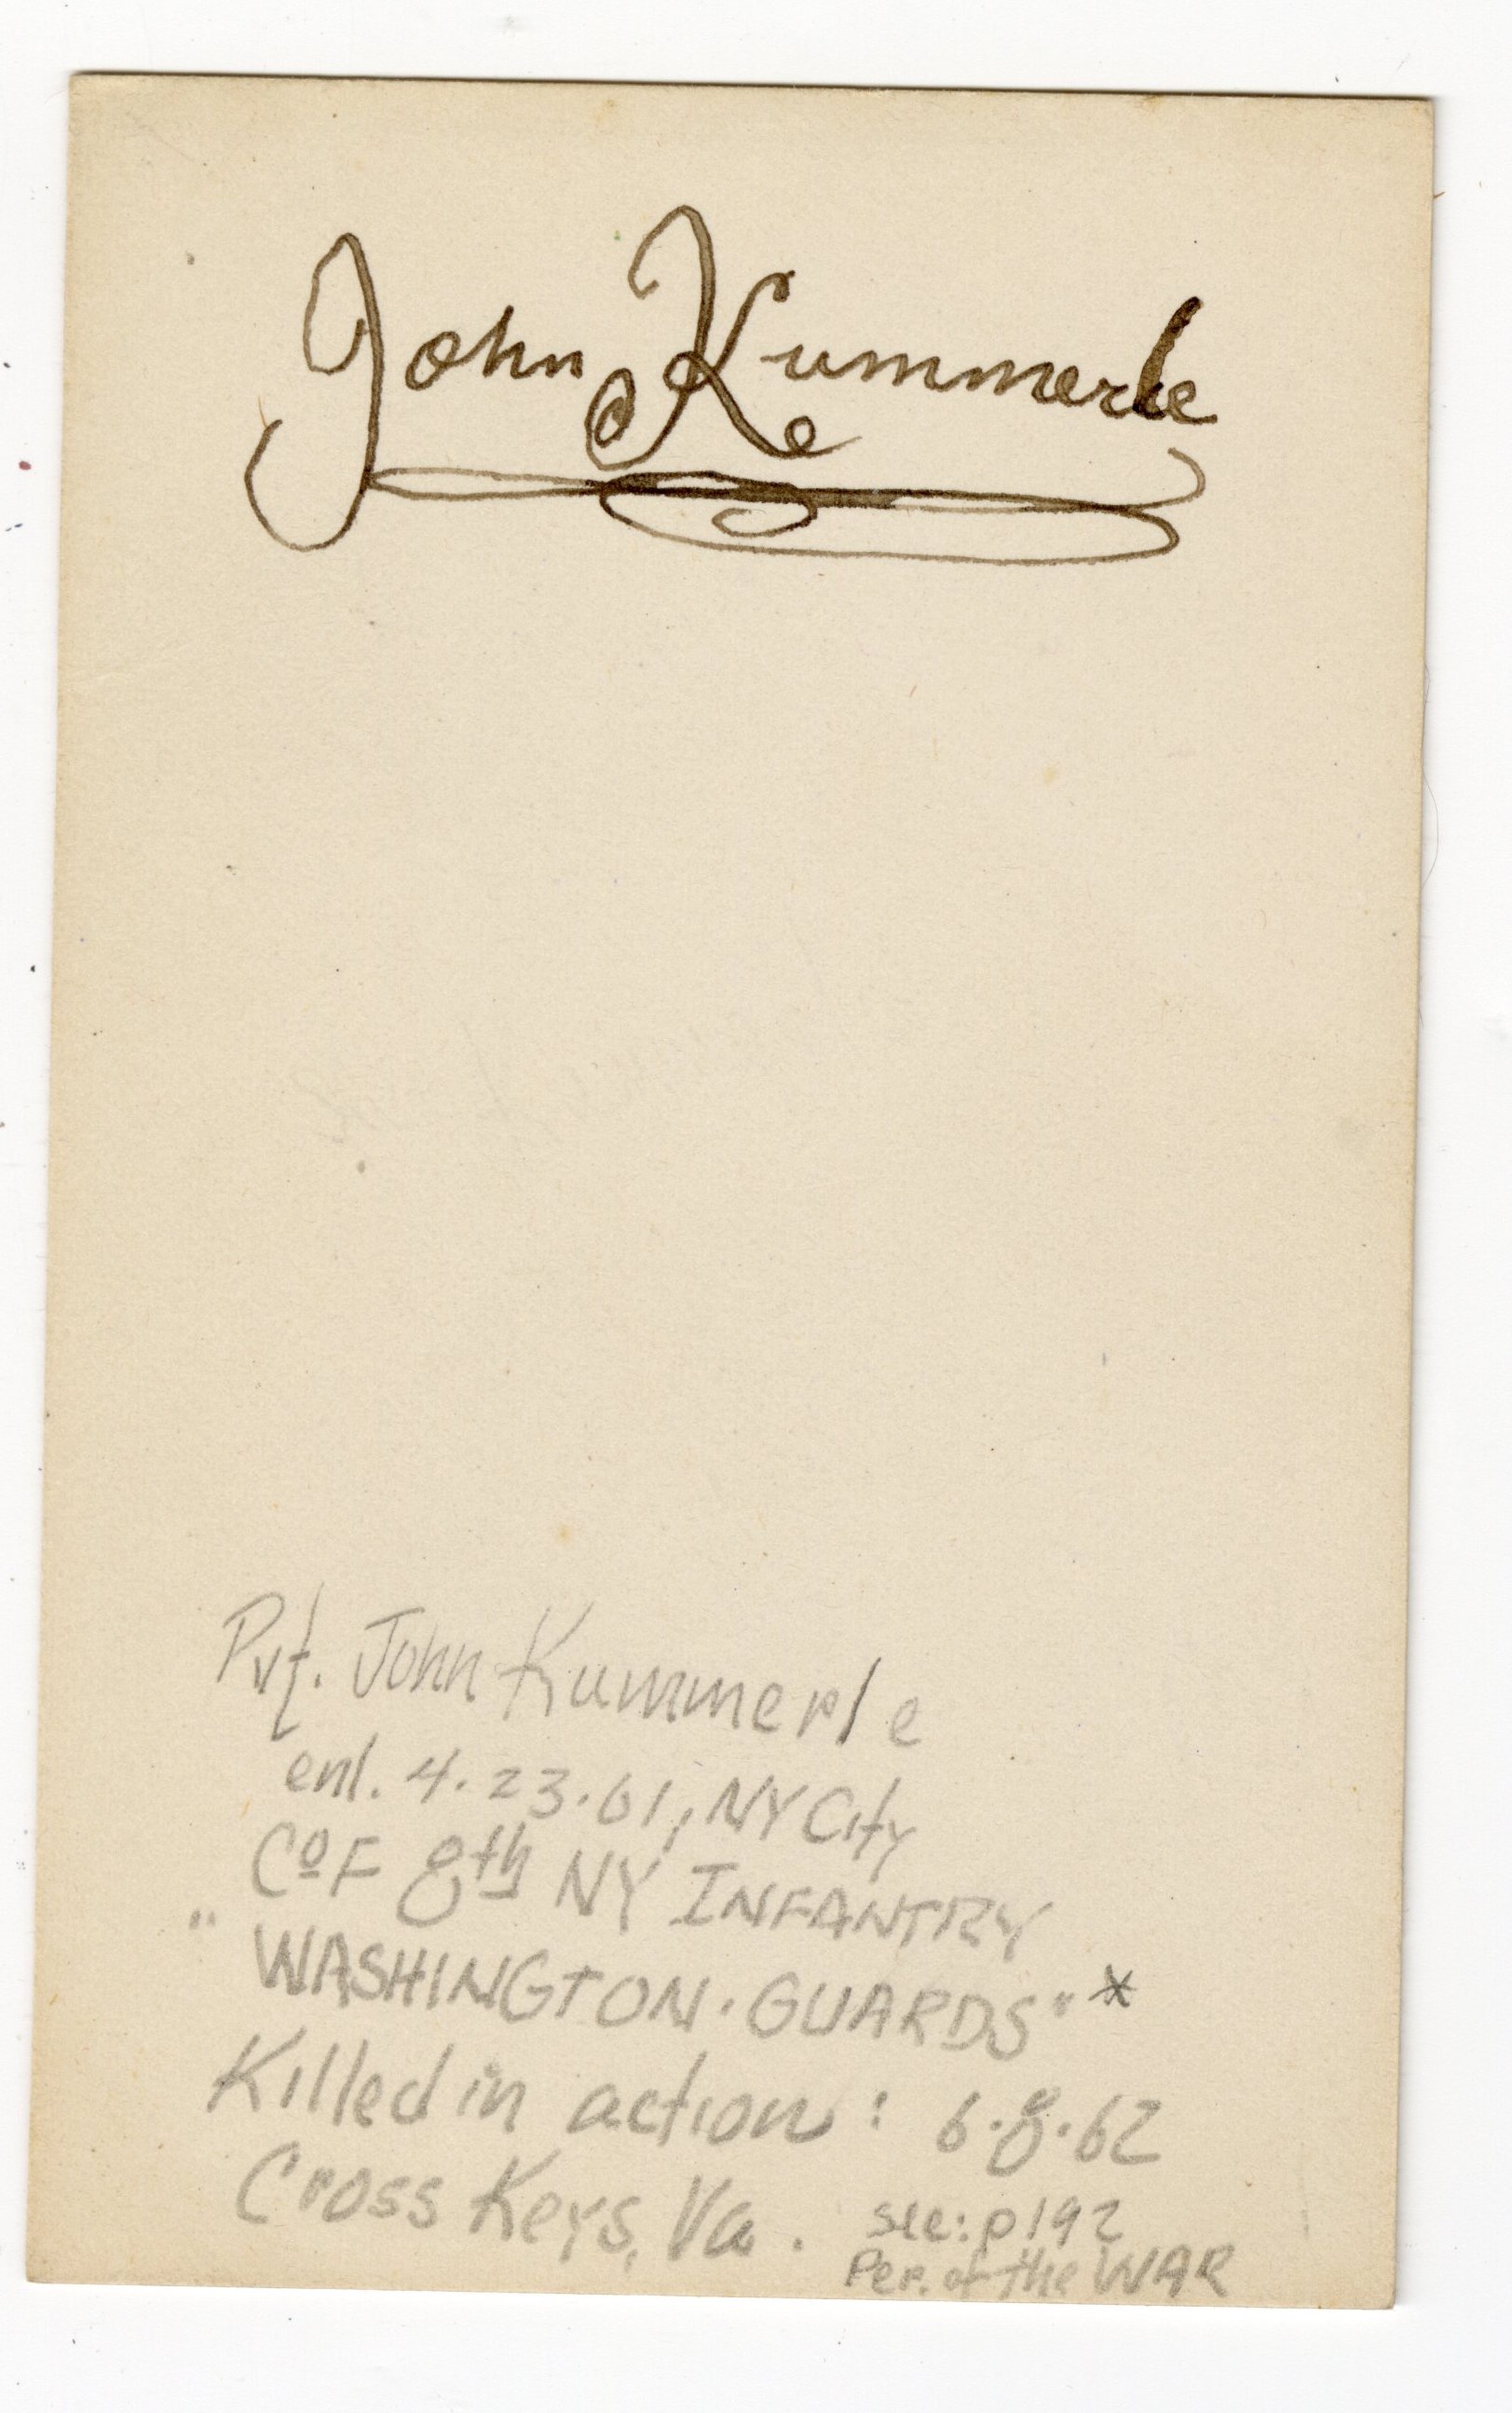 John Kummerle
Pvt. John Kummerle
enl. 4.23.61, NY City
Co F 8th NY INFANTRY
"WASHINGTON. GUARDS" *
Killed in action: 6.8.62
Cross Keys, Va.
see: p192
Per. of the WAR